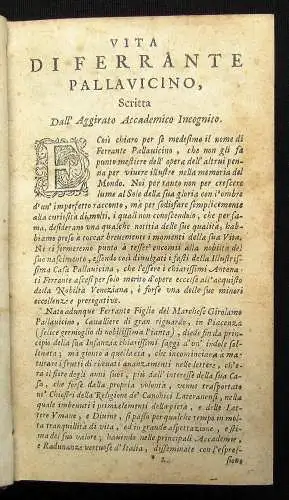 VITA
DI FERRANTE
PALLAVICINO,
Scritta
Dall' Aggirato Accademico Incognito.
E Così chiaro per se medesimo il nome di
Ferrante Pallavicino, che non gli fà
punto mestiere dell'opera dell'altrui pen-
na per vivere illustre nella memoria del
Mondo. Noi per tanto non per crescere
lume al Sole della sua gloria con l'ombra
d'un' imperfetto racconto, mà per sodisfare semplicemente
alla curiosità di molti, i quali non conoscendolo, che per fa-
ma, desiderano una qualche notitia delle sue qualità, hab-
biamo preso à toccar brevemente i momenti della sua Vita.
Nè ci fermeremo punto à tesser encomii alla nobiltà del
suo nascimento, essendo così divulgati i fasti della Illustris-
sima Casa Pallavicina, che l'essere i chiarissimi Antena-
ti Ferrante ascesi per solo merito d'opere eccelse all'acquisto
della Nobiltà Veneziana, è forse una delle sue minori
eccellenze e prerogative.
Nato adunque Ferrante Figlio del Marchese Girolamo
Pallavicino, Cavalliere di gran riguardo, in Piacenza
(felice germoglio di nobilissima Pianta), diede fin da prin-
cipio della sua Infanzia chiarissimi saggi d'un' indole sol-
levata; mà gionto a quella età, che incomincia a ma-
turare i frutti di ricevuti ammaestramenti nelle lettere, ch'e-
ra il fiore degli anni suoi, più dall' interesse della sua Ca-
sa, che forse dalla propria volontà, venne trasportato
ne' Chiostri della Religione de' Canonici Lateranensi, nella
quale imbevuti i primi elementi della pietà, e delle Let-
tere Umane, e Divine, si passò per qualche tempo in mol-
ta tranquillità di vita, ed in grande aspettazione, e sti-
ma del suo valore, havendo nelle principali Accademie, e
Radunanze vertuose d'Italia, disseminate con l'espres-
* 2 sione